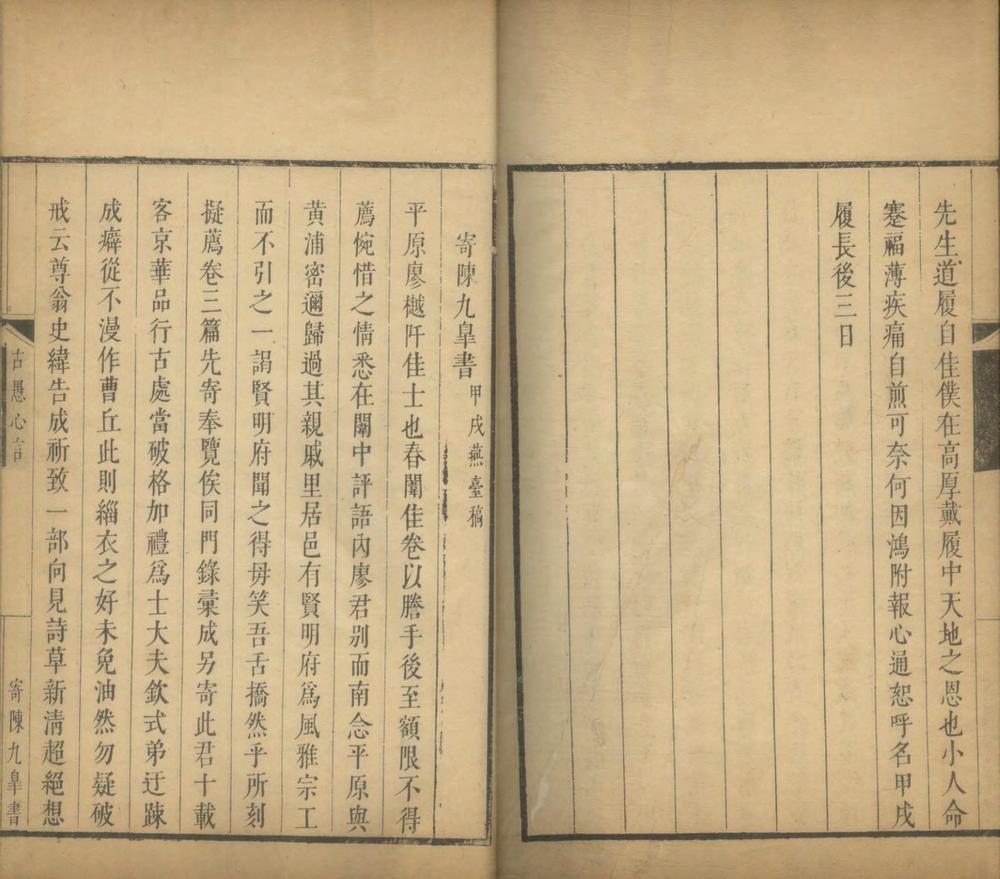 先生道履自佳僕在高厚戴履中天地之恩也小人命
蹇福薄疾痛自煎可奈何因鴻附報心通恕呼名甲戌
履長後三日
寄陳九臯書甲戌燕臺稿
平原廖樾阡佳士也春闈佳卷以謄手後至額限不得
薦惋惜之情悉在闈中評語內廖君别而南念平原與
黃浦密邇歸過其親戚里居邑有賢明府爲風雅宗工
而不引之一謁賢明府聞之得毋笑吾舌撟然乎所刻
擬薦卷三篇先寄奉覽俟同門錄彙成另寄此君十載
客京華品行古處當破格加禮爲士大夫欽式弟迂踈
成癖從不漫作曹丘此則緇衣之好未免油然勿疑破
戒云尊翁史緯告成祈致一部向見詩草新清超絕想
古愚心言
寄陳九臯書